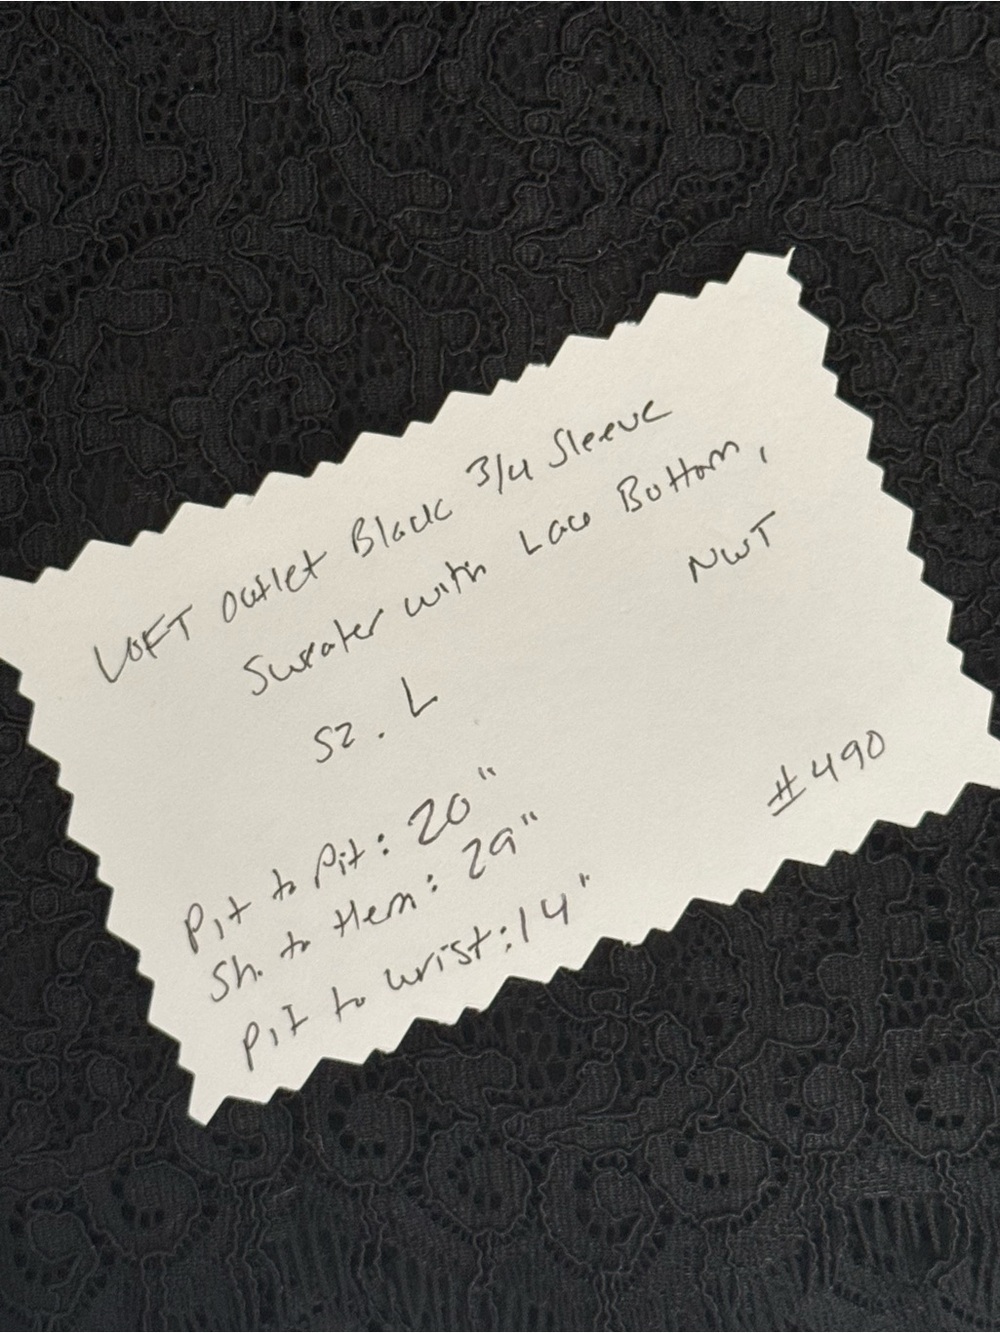 LOFT Outlet Black 3/4 Sleeve
Sweater with Lace Bottom,
NWT
SZ. L
#490
Pit to Pit: 20"
Sh. to Hem: 29"
Pit to wrist: 14"